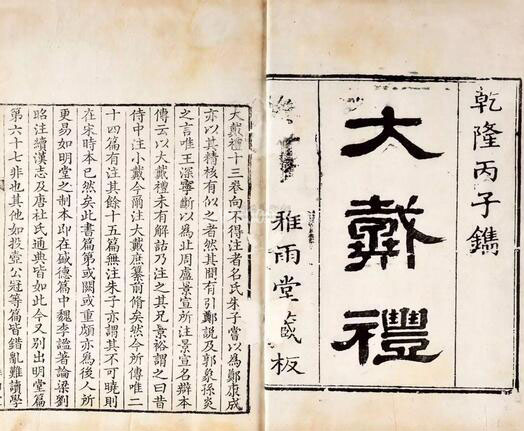 乾隆丙子鐫
大戴禮
雅雨堂藏板
大戴禮十三卷向不得注者名氏朱子嘗以為鄭康成
亦以其精核有似之者然其間有引鄭說及郭象孫炎
之言唯王深寧斷以為北周盧景宣所注景宣名辯本
傳云以大戴禮未有解詁乃注之其兄景裕謂之曰昔
侍中注小戴今爾注大戴庶纂前脩矣然今所傳唯二
十四篇有注其餘十五篇無注朱子亦謂其不可曉則
在宋時本已然矣此書篇第或闕或重頗亦為後人所
更易如明堂之制本即在盛德篇中魏李謐著論梁劉
昭注續漢志及唐杜氏通典皆如此今又別出明堂篇
第六十七非也其他如投壺公冠等篇皆錯亂難讀學